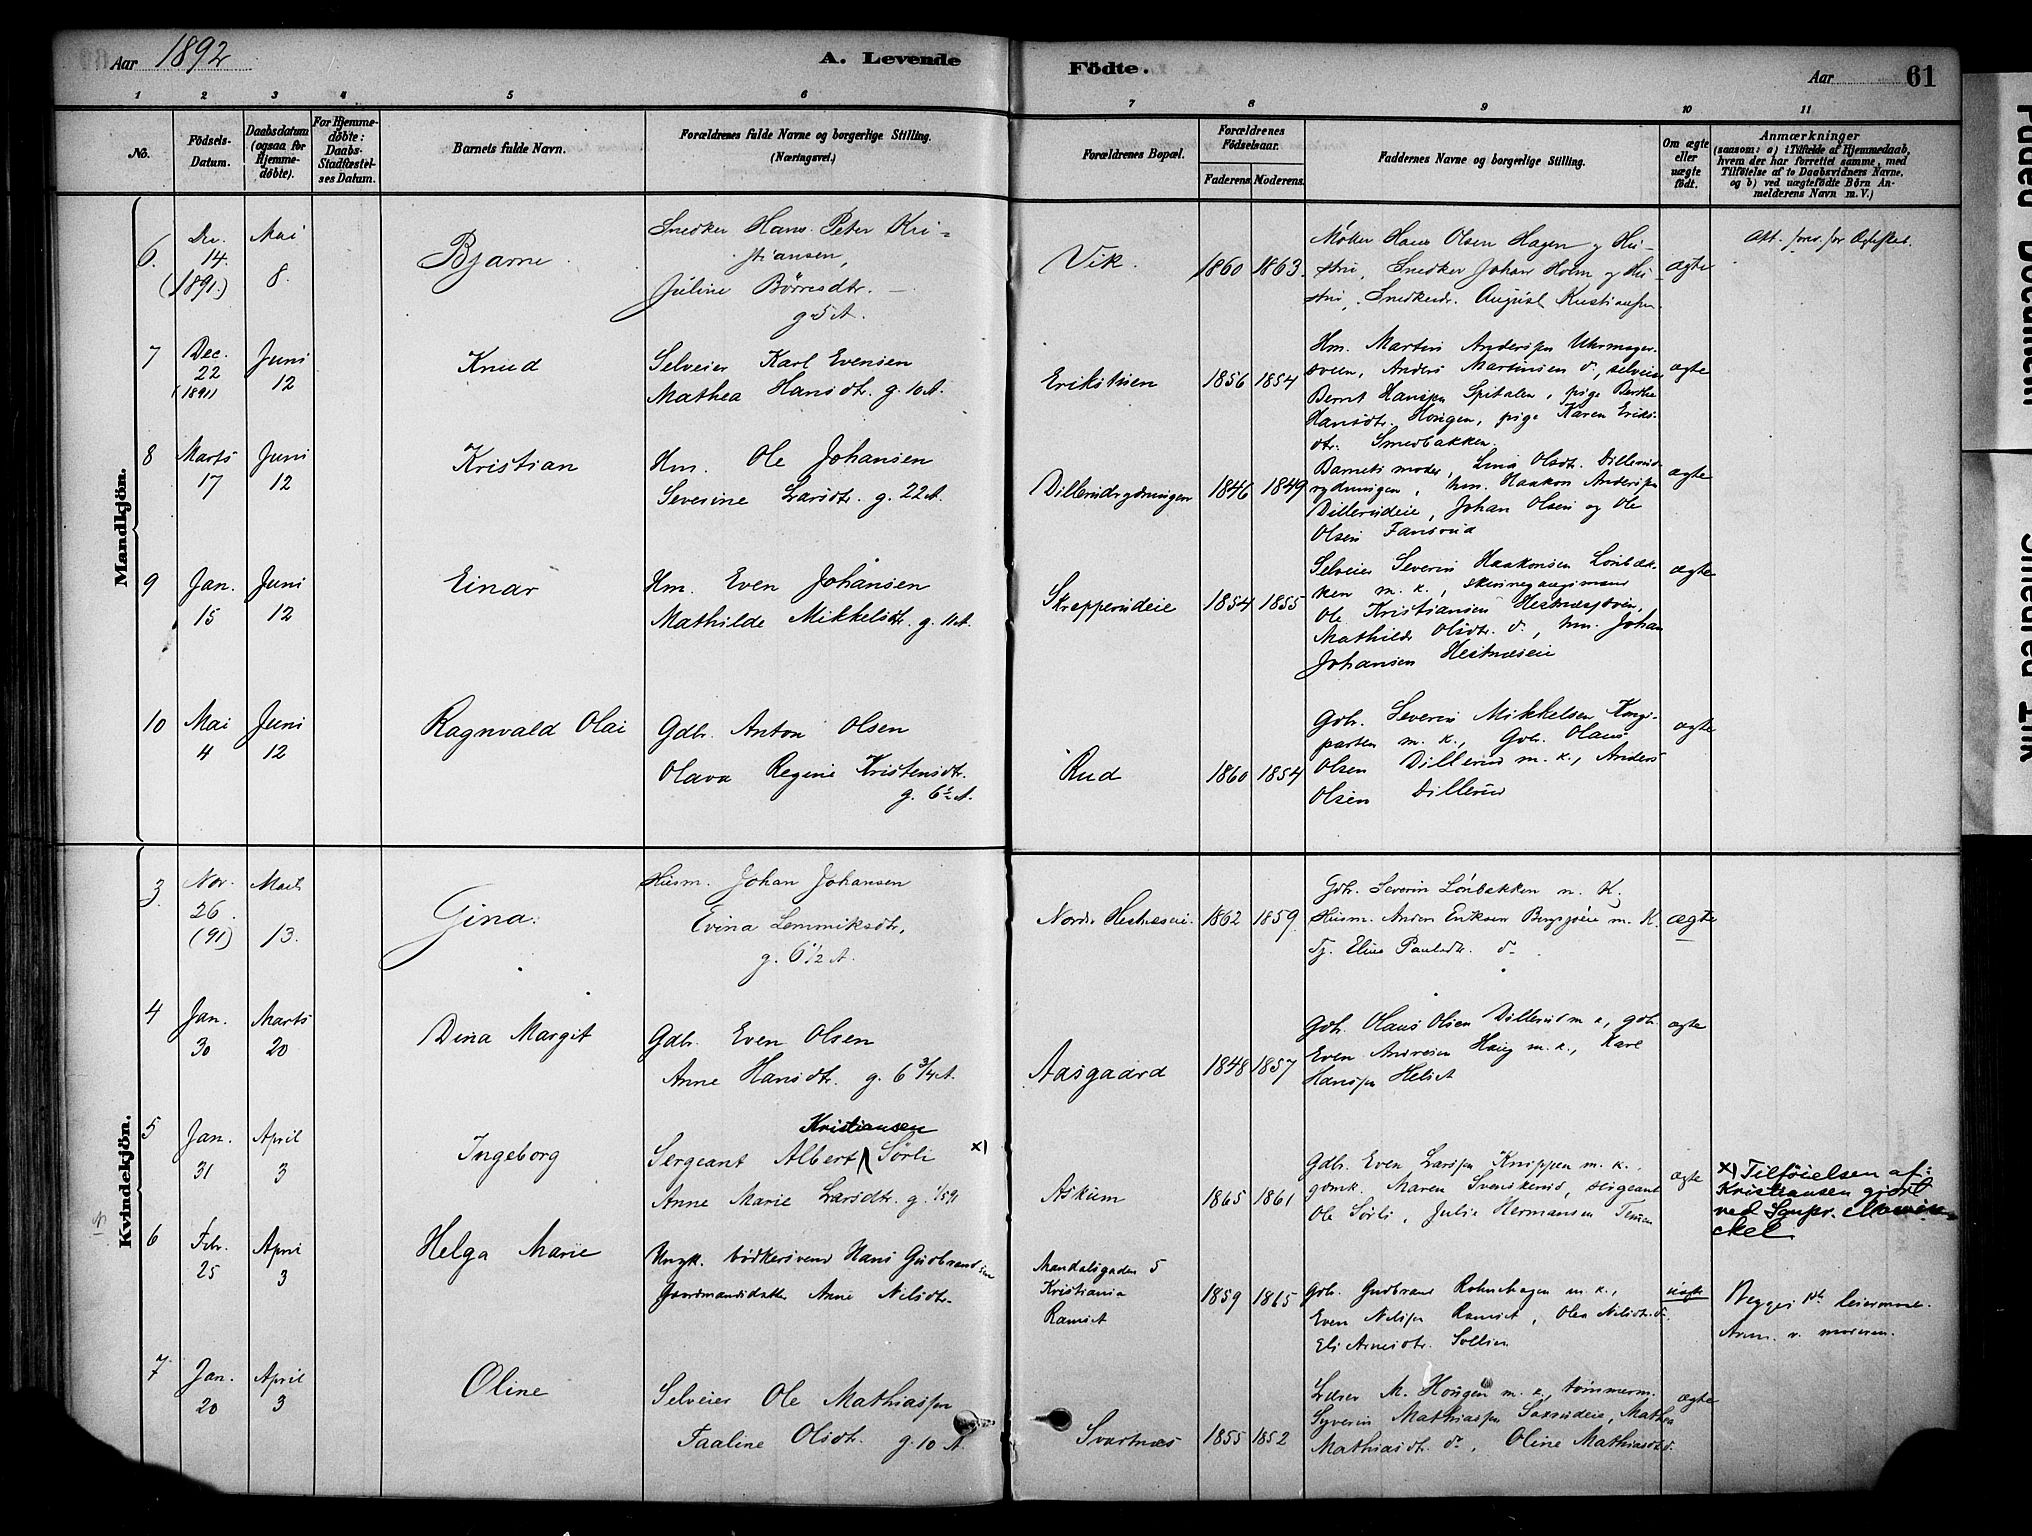 Aar 1892
A. Levende
Födte.
Aar
61
1 2 3 4 5 6 7 8 9 10 11
No.
Födsels-
Datum.
Daabsdatum
(ogsaa for
Hjemme-
døbte).
For Hjemme-
døbte:
Daabs-
Stadfæstel-
ses Datum.
Barnets fulde Navn.
Forældrenes fulde Navne og borgerlige Stilling.
(Næringsvei.)
Forældrenes Bopæl.
Forældrenes
Födselsaar.
Faderens. Moderens.
Faddernes Navne og borgerlige Stilling.
Om ægte
eller
uægte
født.
Anmærkninger
(saasom: a) i Tilfælde af Hjemmedaab,
hvem der har forrettet samme, med
Tilføielse af to Daabsvidners Navne,
og b) ved uægtefødte Börn An-
melderens Navn m. V.)
Mandkjön.
6.
14
(1891.)
Mai
8.
Bjarne
Snedker Hans Peter Kri-
stiansen,
Juline Börresdtr.
g. 5 A.
Vik.
1860 1863.
Hans Olsen Hagen og Hu-
stru, Snedker Johan Holm og Hu-
stru, August Kristiansen
ægte
7
Dec.
22
(1891)
Juni
12
Knud
Selveier Karl Evensen
Mathea Hansdtr. g. 10 A.
Erikstuen
1856 1854
Hm. Martin Andersen Uhrmager-
sveen, Anders Martinsen do, selveier
Bernt Hansen Spitalen, pige Berthe
Hansdtr. Hougen, pige Karen Eriks-
dtr. Smedbakken.
ægte
8
Marts
17
Juni
12
Kristian
Hm. Ole Johansen
Severine Larsdtr. g. 22 A.
Dillerudrydningen
1846 1849
Barnets moder, Lina Olsdtr. Dillerud-
rydningen, hm. Haakon Andersen
Dillerudeie, Johan Olsen og Ole
Olsen Fansrud
ægte
9
Jan.
15
Juni
12
Einar
Hm. Even Johansen
Mathilde Mikkelsdtr. g. 11 A.
Skrapperudeie
1854 1855
Selveier Severin Haakonsen Lönbæk-
ken m. k.,
Ole Kristiansen
Mathilde Olsdtr. do, hm. Johan
Johansen Hestnæseie
ægte
10
Mai
4
Juni
12
Ragnvald Olai
Gdbr. Anton Olsen
Olava Regine Kristensdtr.
g. 6½ A.
Rud
1860 1854
Gdbr. Severin Mikkelsen Kongs-
parten m. k., Gdbr. Olaus
Olsen Dillerud m. k., Anders
Olsen Dillerud
ægte
Kvindekjön.
3.
Nov.
26.
(91)
Marts
13.
Gina.
Husm. Johan Johansen
Evina Lemmiksdtr.
g. 6 1/2 A.
Nordr. Hestnæseie.
1862 1859.
Gdbr. Severin Lönbakken m. K.
Husm. Anders Eriksen m. K.
Tj. Eline Paulsdtr. do
ægte
4
Jan.
30
Marts
20
Dina Margit
Gdbr. Even Olsen
Anne Hansdtr. g. 6 3/4 A.
Aasgaard
1848 1857
Gdbr. Olaus Olsen Dillerud m. k., gdbr.
Even Andresen Houg m. k., Karl
Hansen Helset
ægte
5
Jan.
31
April
3
Ingeborg
Kristiansen
Sergeant Albert Sörli x)
Anne Marie Larsdtr. g. 1/5 91
Askum
1865 1861
Gdbr. Even Larsen Knippen m. k.,
gdmk. Maren Svenskerud, sergeant
Ole Sörli, Julie Hermansen
ægte
x) Tilföielsen af:
Kristiansen gjort
ved Sogspr. Mowin-
ckel
6
Febr.
25
April
3
Helga Marie
Ungk. bödkersvend Hans Gudbrandsen
Gaardmandsdatter Anne Nilsdtr.
Mandalsgaden 5
Kristiania
Ramset
1859 1865
Gdbr. Gudbrand m. k.,
Even Nilsen Ramset, Olea Nilsdtr. do
Eli Arnesdtr. Sollien
uægte
Begges 1ste leiermaal.
Anm. v. moderen.
7
Jan.
20
April
3
Oline
Selveier Ole Mathiasen
Taaline Olsdtr. g. 10 A.
Svartnæs
1855 1852
M. Hougen m. k., tömmerm.
Syverin Mathiasen Saxrudeie, Mathea
Mathiasdtr. do, Oline Mathiasdtr. do
ægte
Faded Document
Smeared Ink